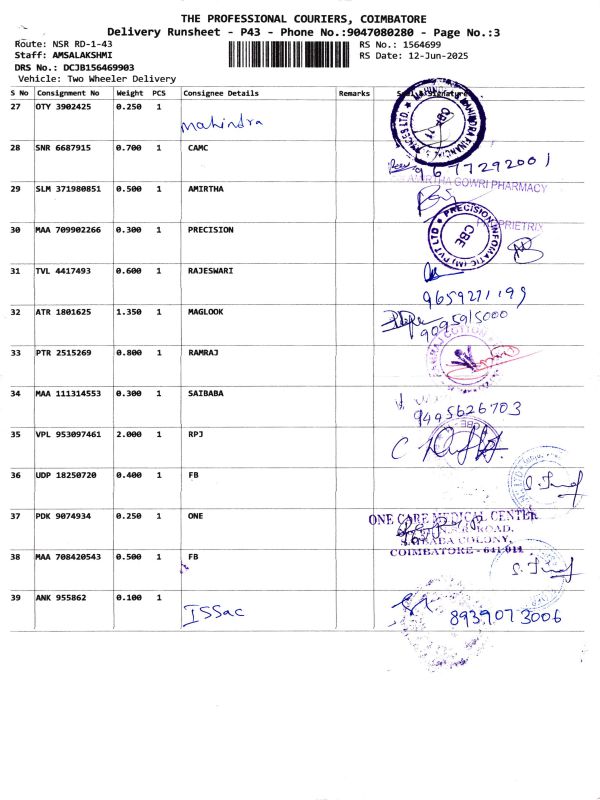 THE PROFESSIONAL COURIERS, COIMBATORE
Delivery Runsheet - P43 - Phone No.:9047080280 - Page No.:3
Route: NSR RD-1-43 RS No.: 1564699
Staff: AMSALAKSHMI RS Date: 12-Jun-2025
DRS No.: DCJB156469903
Vehicle: Two Wheeler Delivery
S No Consignment No Weight PCS Consignee Details Remarks
27 OTY 3902425 0.250 1 Mahindra
28 SNR 6687915 0.700 1 CAMC
29 SLM 371980851 0.500 1 AMIRTHA
GOWRI PHARMACY
30 MAA 709902266 0.300 1 PRECISION
PRECISION INFOMATIC (M) PVT LTD
CBE
31 TVL 4417493 0.600 1 RAJESWARI
9659271199
32 ATR 1801625 1.350 1 MAGLOOK
9095915000
33 PTR 2515269 0.800 1 RAMRAJ
34 MAA 111314553 0.300 1 SAIBABA
9495626703
35 VPL 953097461 2.000 1 RPJ
36 UDP 18250720 0.400 1 FB
37 PDK 9074934 0.250 1 ONE
ONE CARE MEDICAL CENTER
COLONY,
COIMBATORE - 641 011
38 MAA 708420543 0.500 1 FB
39 ANK 955862 0.100 1 ISSac
8939073006